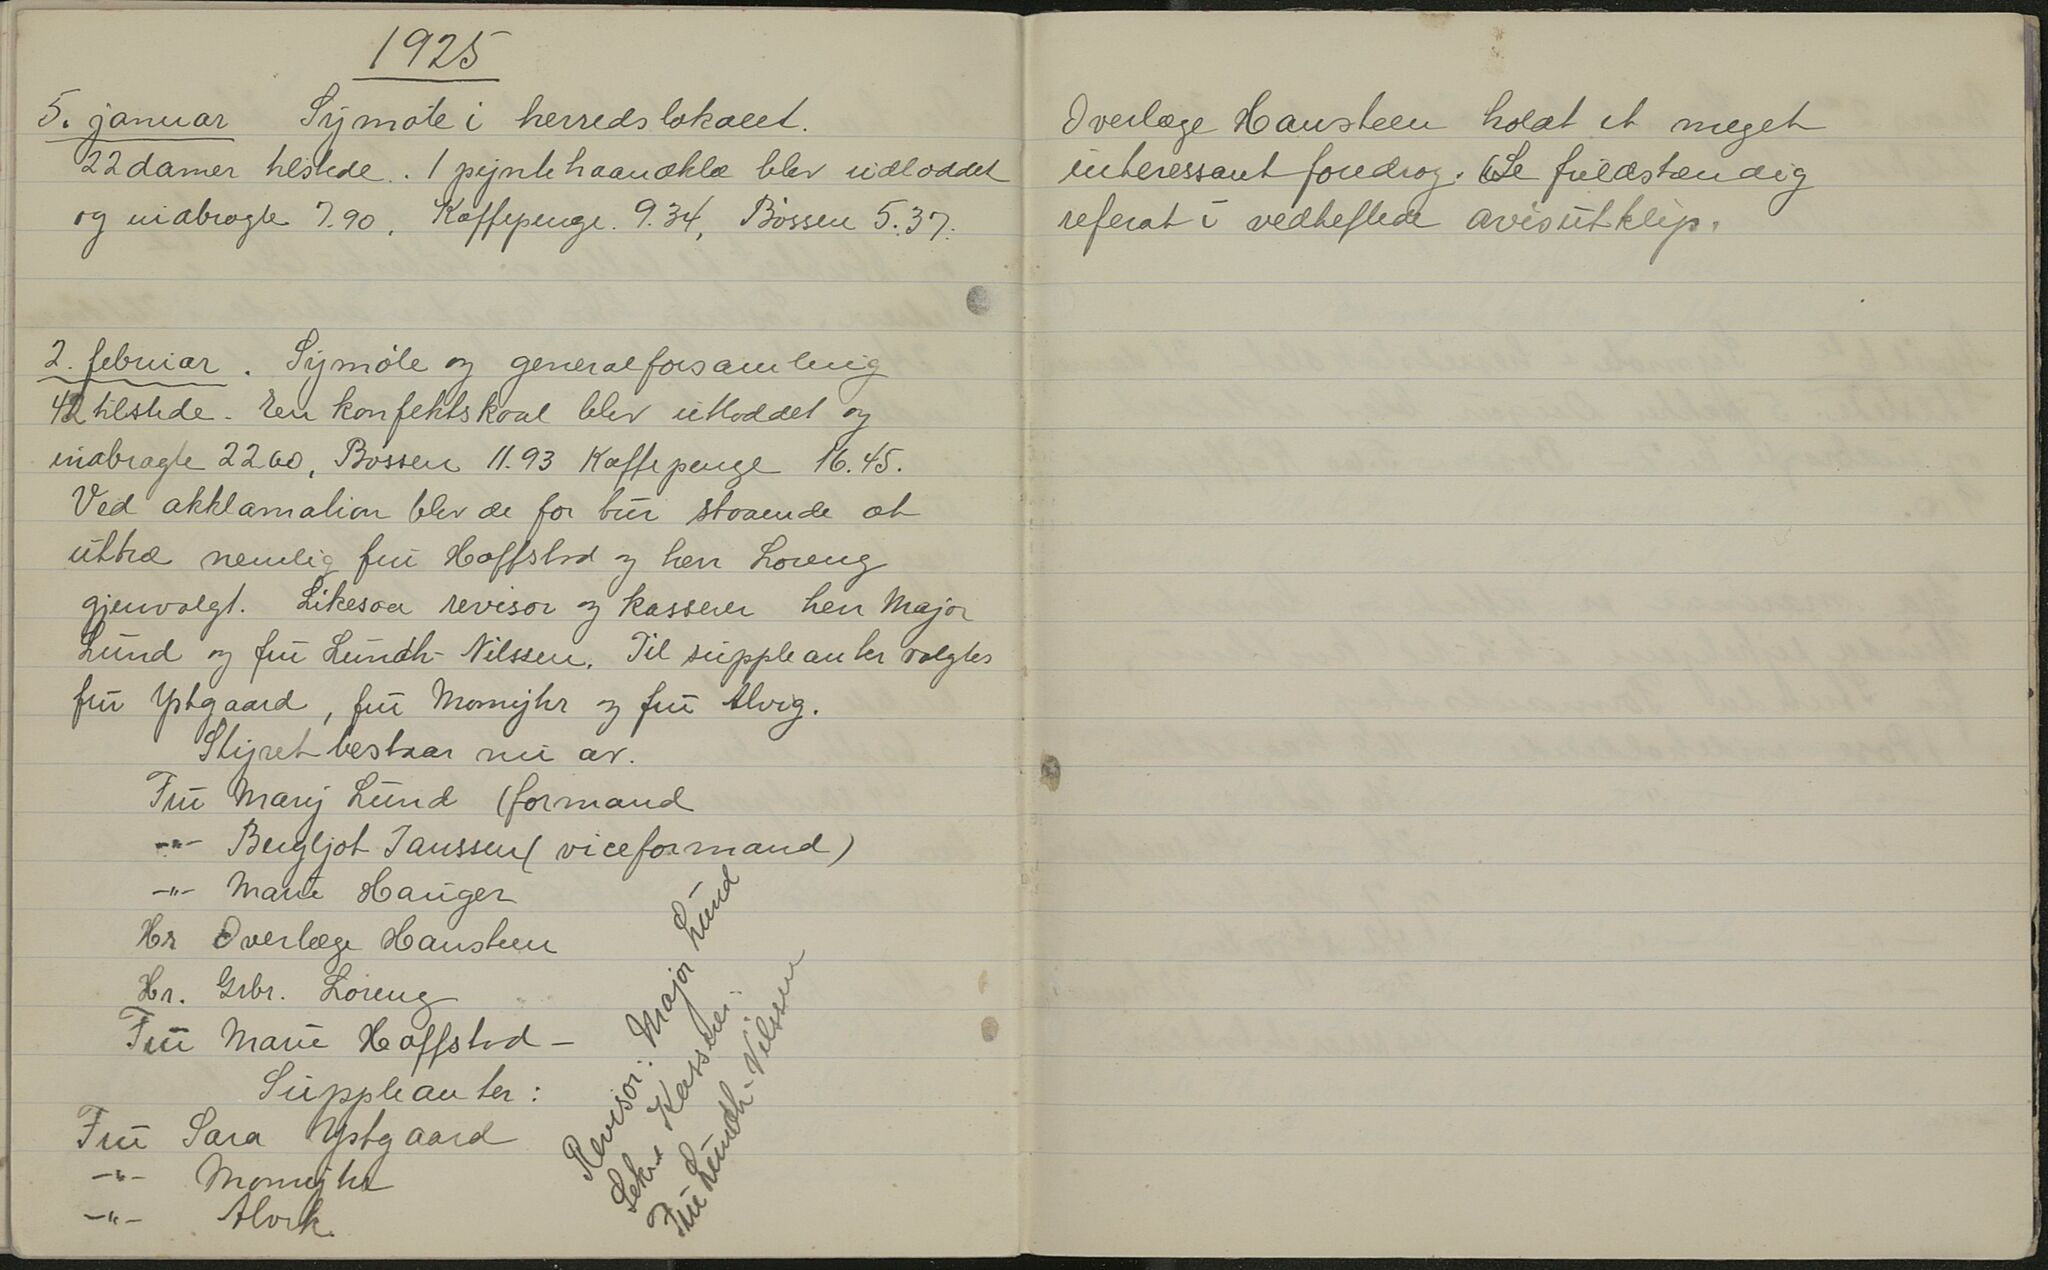 1925
5. januar Symøte i herredslokalet.
22 damer tilstede. 1 pyntehaandklæ blev utloddet
og indbragte 7.90, Kaffepenge 9.34, Bøssen 5.37.
2. februar. Symøte og generalforsamling
42 tilstede. En konfektskaal blev utloddet og
indbragte 22.00, Bøssen 11.93 Kaffepenge 16.45.
Ved akklamation blev de for tur staaende at
uttræ nemlig fru Hoffstad og herr Loreng
gjenvalgt. Likesaa revisor og kasserer herr Major
Lund og fru Lundh-Nilssen. Til suppleanter valgtes
fru Ystgaard, fru Momyhr og fru Alvig.
Styret bestaar nu av.
Fru Mary Lund (formand
-"- Bergljot Janssen (viceformand)
-"- Marie Hauger
Hr Overlæge Hansteen
Hr. Grbr. Loreng
Fru Marie Hoffstad -
Suppleanter:
Fru Sara Ystgaard
-"- Momyhr
-"- Alvik.
Revisor: Major Lund
Sekr Kasserer:
Fru Lundh-Nilssen
Overlæge Hansteen holdt et meget
interessant foredrag. Se fuldstændig
referat i vedheftede avisutklip.